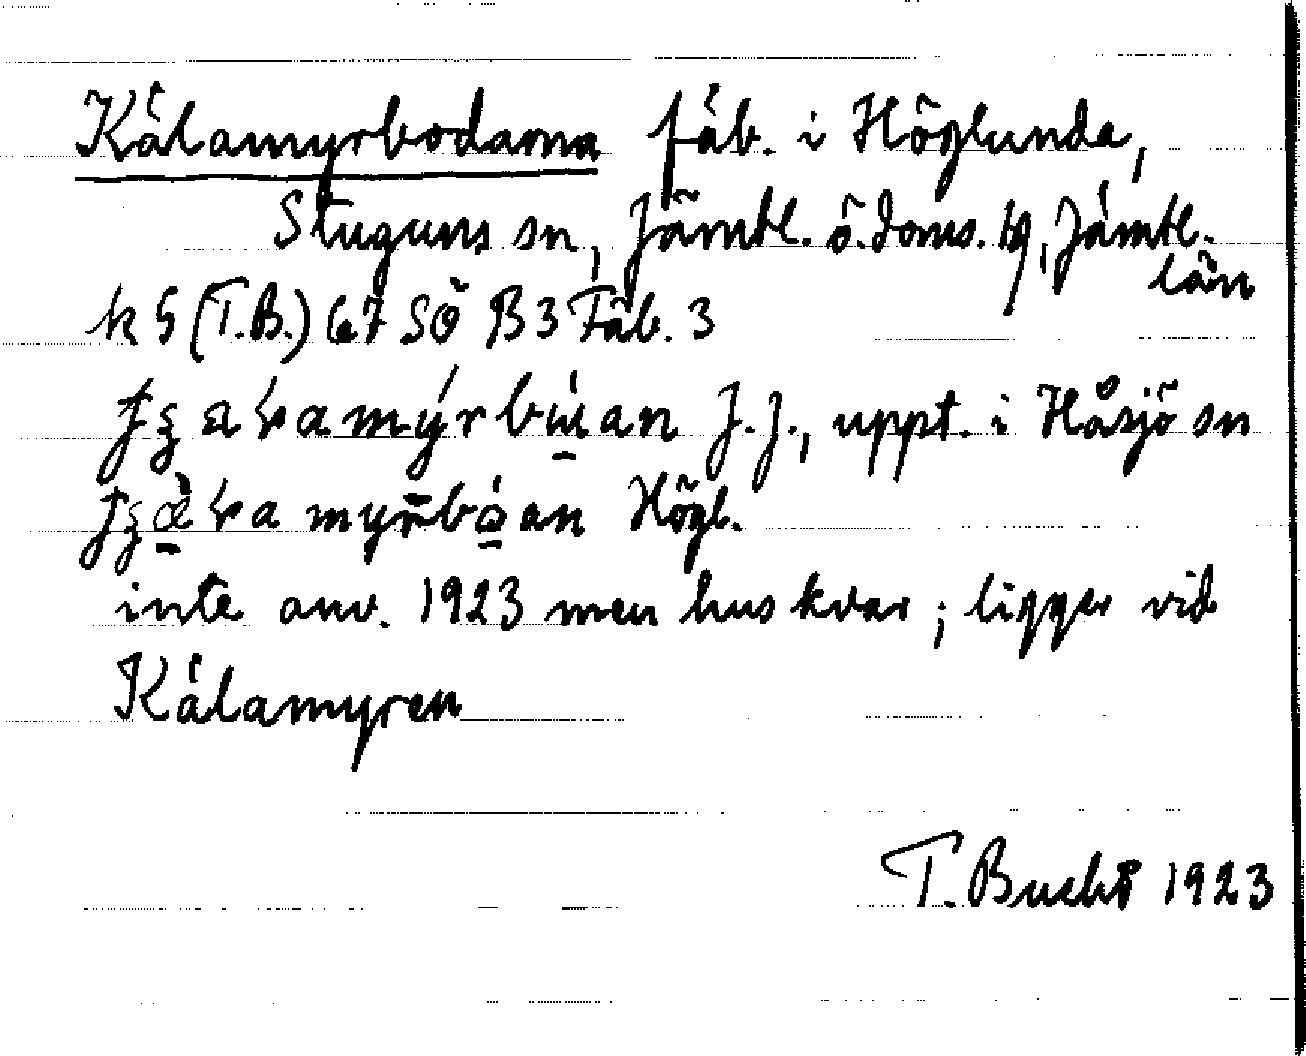 Kälamyrbodarna fäb. i Höglunda,
Stuguns sn, Jämtl. ö. doms. tg, Jämtl.
län
k 5 (T.B.) 67 SÖ B3 Fäb. 3
J.J., uppt. i Håsjö sn
Högl.
inte anv. 1923 men hus kvar; ligger vid
Kälamyren
T. Bucht 1923